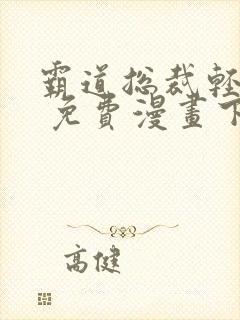 霸道总裁輕
免費漫畫下
高健